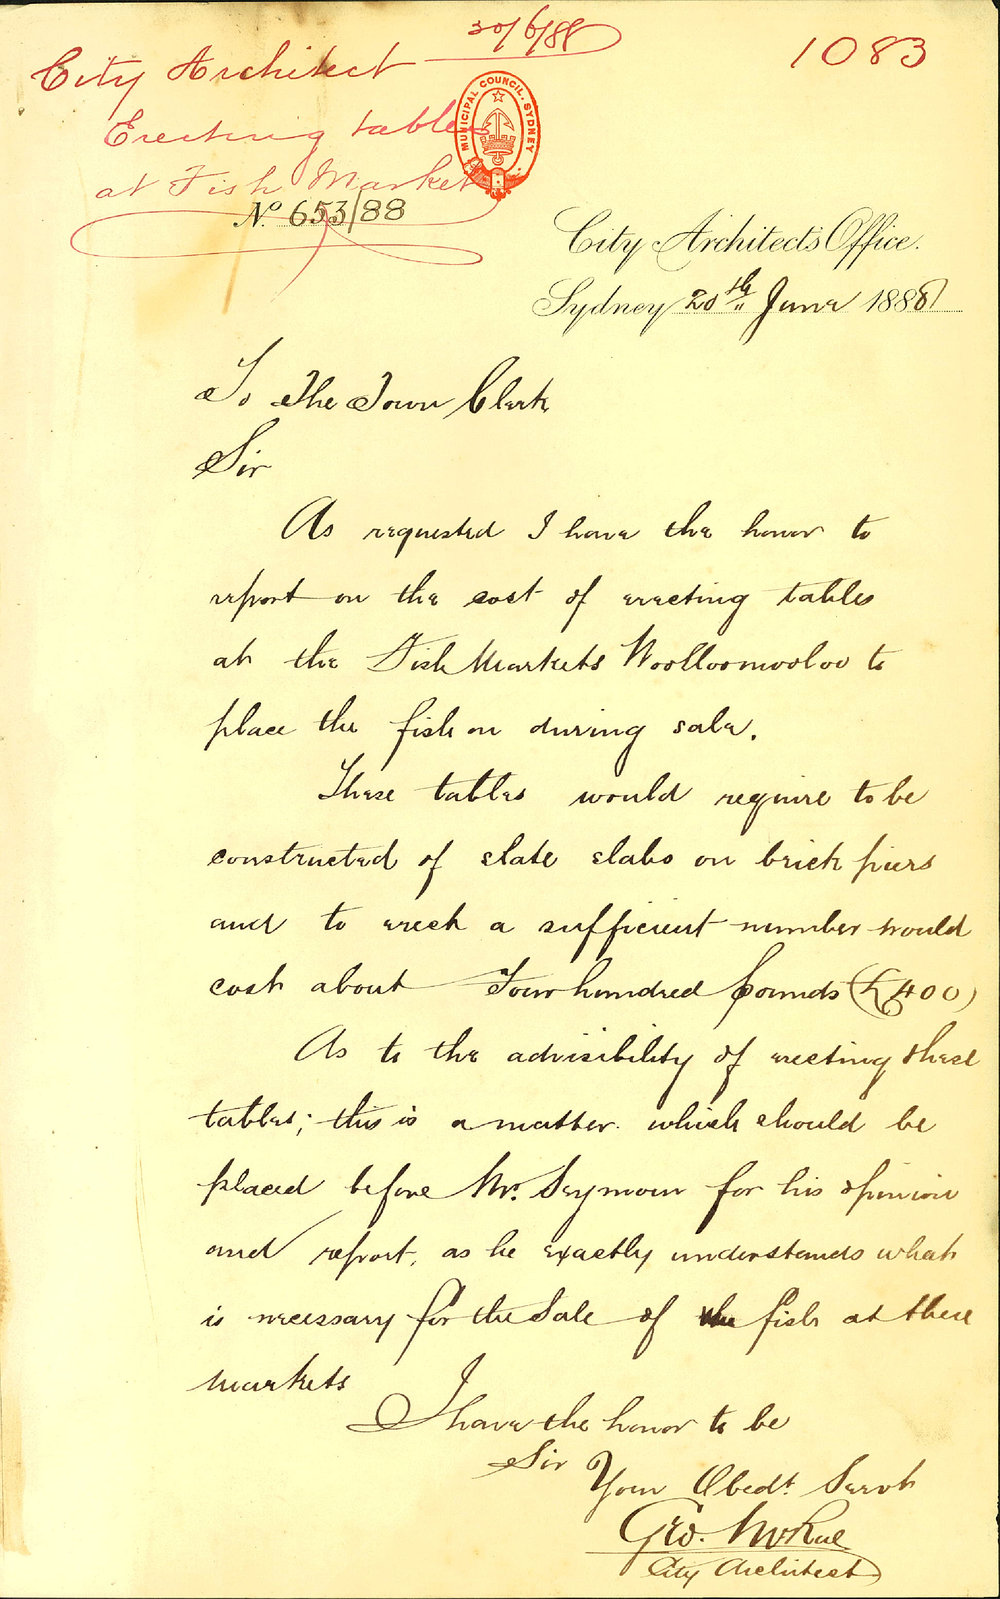 City Architect 20/6/88
1083
Erecting tables
at Fish Market
MUNICIPAL COUNCIL. SYDNEY
No. 653/88
City Architect's Office.
Sydney 20th June 1888
To The Town Clerk
Sir
As requested I have the honor to
report on the cost of erecting tables
at the Fish Markets Woolloomooloo to
place the fish on during sale.
These tables would require to be
constructed of slate slabs on brick piers
and to erect a sufficient number would
cost about Four hundred pounds (£400)
As to the advisibility of erecting these
tables; this is a matter which should be
placed before Mr. Seymour for his opinion
and report, as he exactly understands what
is necessary for the Sale of the fish at these
markets
I have the honor to be
Sir
Your Obedt. Servt
Geo. McRae
City Architect